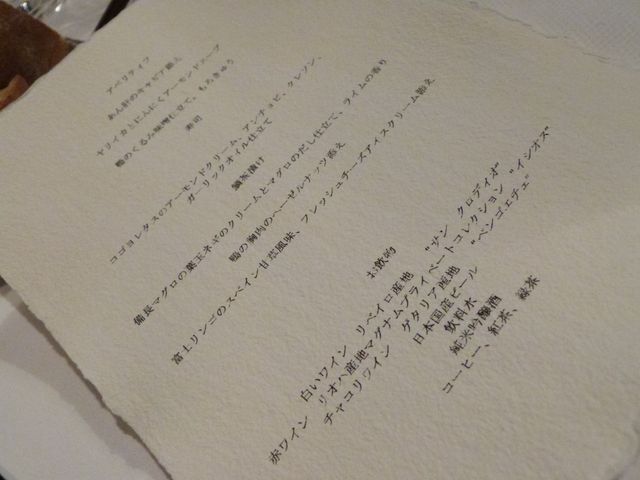 アペリティフ
あん肝のキャビア添え
ヤリイカとにんにくアーモンドスープ
鴨のくるみ味噌仕立て、もろきゅう
寿司
コゴヨレタスのアーモンドクリーム、アンチョビ、クレソン、
ガーリックオイル仕立て
鯛茶漬け
備長マグロの葉玉ネギのクリームとマグロのだし仕立て、ライムの香り
鴨の胸肉のヘーゼルナッツ添え
富士リンゴのスペイン甘草風味、フレッシュチーズアイスクリーム添え
お飲物
白いワイン リベイロ産地 “サン クロディオ”
赤ワイン リオハ産地マグナムプライベートコレクション “イシオス”
チャコリワイン ゲタリア産地 “ベンゴエチェ”
日本国産ビール
飲料水
純米吟醸酒
コーヒー、紅茶、緑茶